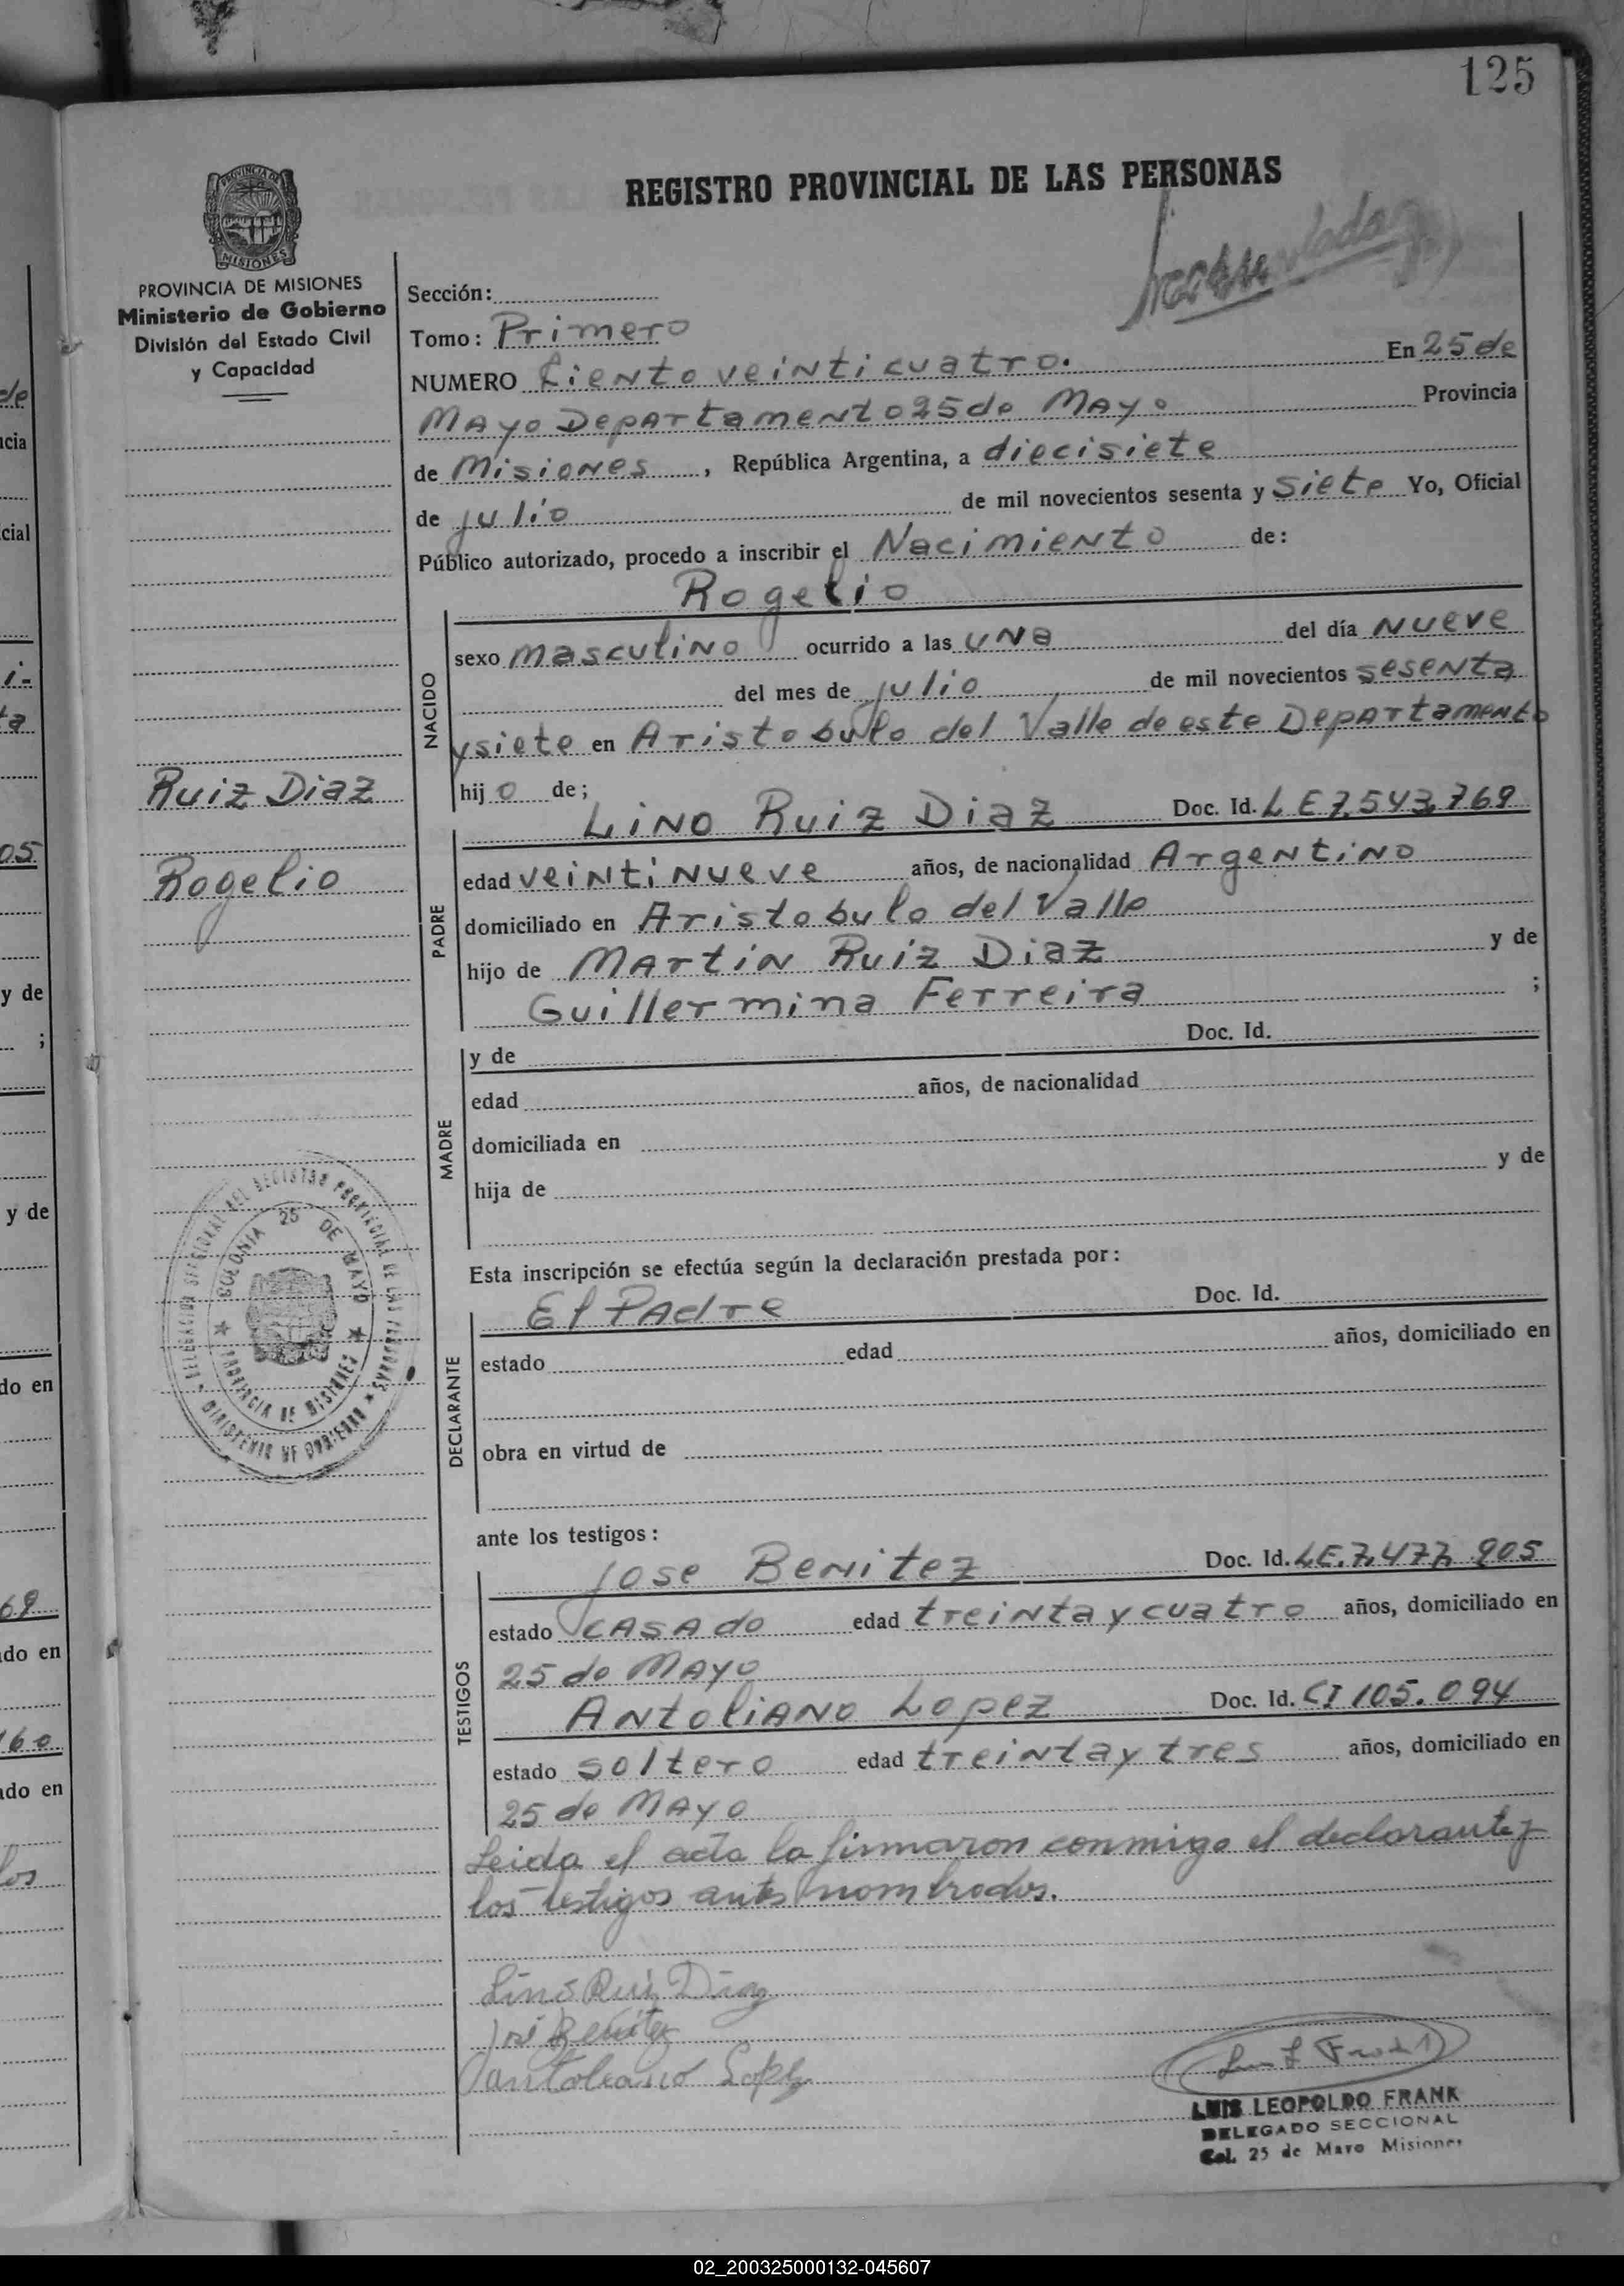 125
REGISTRO PROVINCIAL DE LAS PERSONAS
PROVINCIA DE
MISIONES
PROVINCIA DE MISIONES
Ministerio de Gobierno
División del Estado Civil
y Capacidad
Sección:
Tomo: Primero
NUMERO Ciento veinti cuatro. En 25 de
Mayo Departamento 25 de Mayo Provincia
de Misiones, República Argentina, a diecisiete
de julio de mil novecientos sesenta y siete Yo, Oficial
Público autorizado, procedo a inscribir el Nacimiento de:
Rogelio
NACIDO
sexo masculino ocurrido a las una del día nueve
del mes de julio de mil novecientos sesenta
y siete en Aristobulo del Valle de este Departamento
hijo de;
Ruiz Diaz
Rogelio
Lino Ruiz Diaz Doc. Id. LE 7,543,769
PADRE
edad veinti nueve años, de nacionalidad Argentino
domiciliado en Aristobulo del Valle
hijo de Martin Ruiz Diaz y de
Guillermina Ferreira ;
y de Doc. Id.
MADRE
edad años, de nacionalidad
domiciliada en
hija de y de
DELEGACION SECCIONAL DEL REGISTRO PROVINCIAL DE LAS PERSONAS
COLONIA 25 DE MAYO
PROVINCIA DE MISIONES
MINISTERIO DE GOBIERNO
Esta inscripción se efectúa según la declaración prestada por:
El Padre Doc. Id.
DECLARANTE
estado edad años, domiciliado en
obra en virtud de
ante los testigos:
Jose Benitez Doc. Id. LE.7,477,905
TESTIGOS
estado casado edad treinta y cuatro años, domiciliado en
25 de Mayo
Antoliano Lopez Doc. Id. CI 105.094
estado soltero edad treinta y tres años, domiciliado en
25 de Mayo
Leida el acta la firmaron conmigo el declarante y
los testigos antes nombrados.
Lino Ruiz Diaz
José Benitez
Antoleano Lopez
LUIS LEOPOLDO FRANK
DELEGADO SECCIONAL
Col. 25 de Mayo Misiones
02_200325000132-045607